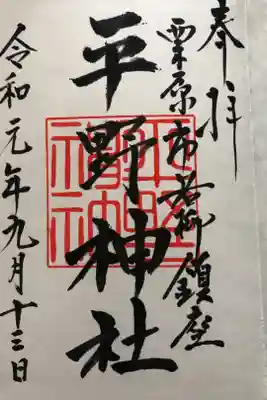 奉拝
栗原市若柳鎮座
平野神社
令和元年九月十三日